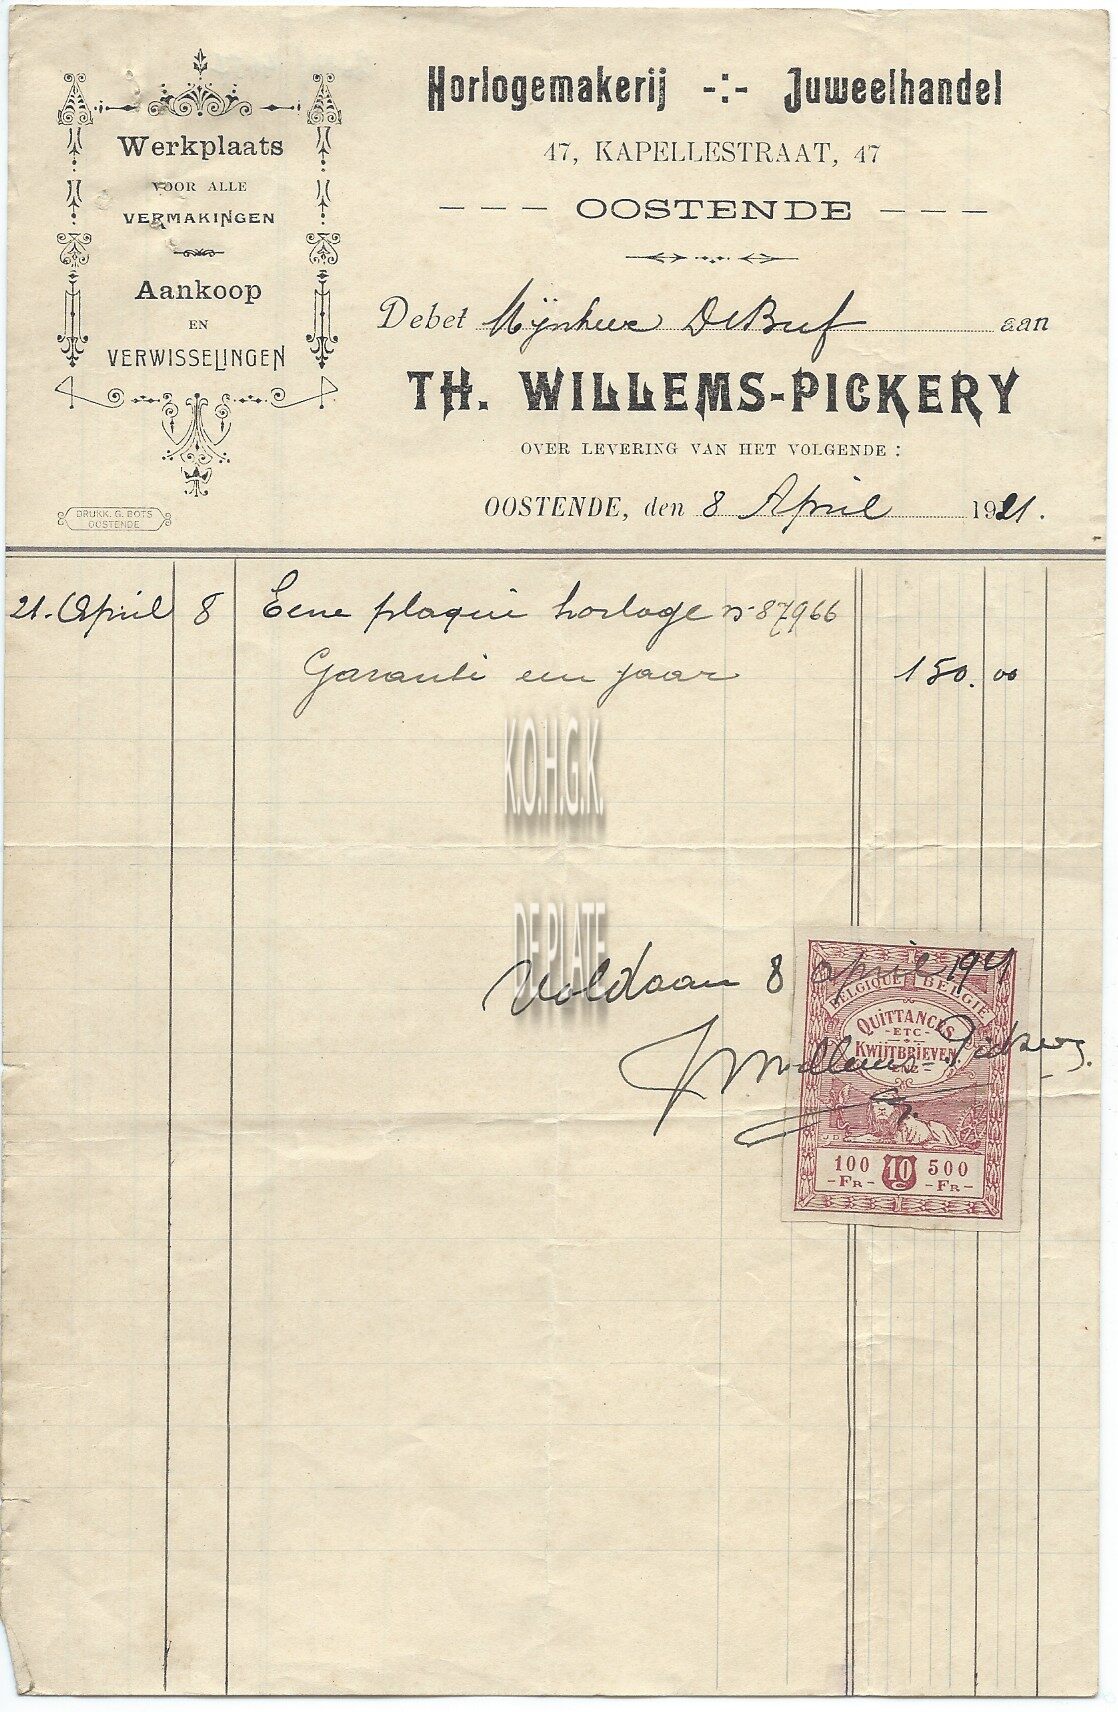 Werkplaats
VOOR ALLE
VERMAKINGEN
Aankoop
EN
VERWISSELINGEN
DRUKK. G. BOTS
OOSTENDE
Horlogemakerij -:- Juweelhandel
47, KAPELLESTRAAT, 47
--- OOSTENDE ---
Debet Mijnheer DeBuf aan
TH. WILLEMS-PICKERY
OVER LEVERING VAN HET VOLGENDE :
OOSTENDE, den 8 April 1921.
21. April 8 Eene plaqué horloge n° 87966
Garantie een jaar 150.00
K.O.H.G.K.
DE PLATE
Voldaan 8 april 1921
Willems-Pickery
BELGIQUE BELGIË
QUITTANCES
-ETC-
KWIJTBRIEVEN
ENZ
J D
100 10 500
-FR- C -FR-